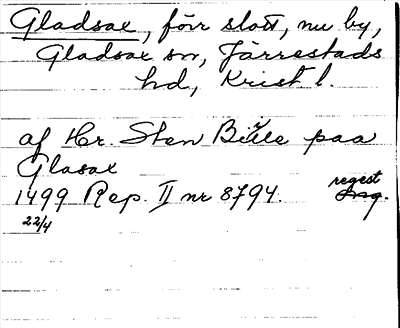 Gladsax, förr slott, nu by,
Gladsax sn, Järrestads
hd, Krist. l.
af Hr. Sten Bille paa
Glasax
1499 Rep. II nr 8794. regest
22/4